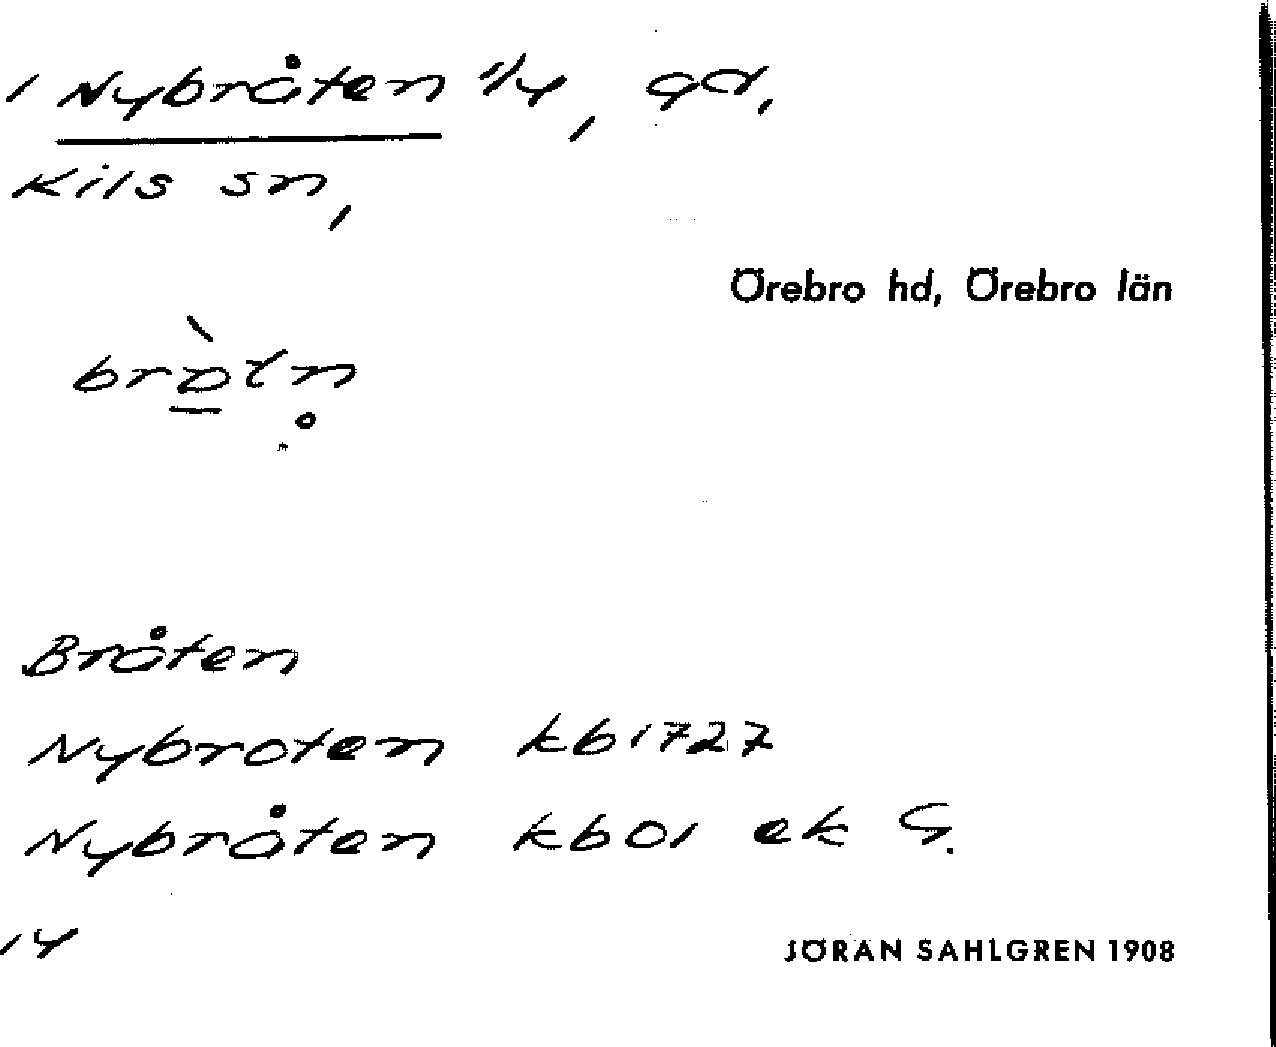 1 Nybråten 1/4, gd,
Kils sn,
Örebro hd, Örebro län
brò̲tn̥
Bråten
Nybroten kb 1727
Nybråten kb 01 ek G.
14
JÖRAN SAHLGREN 1908